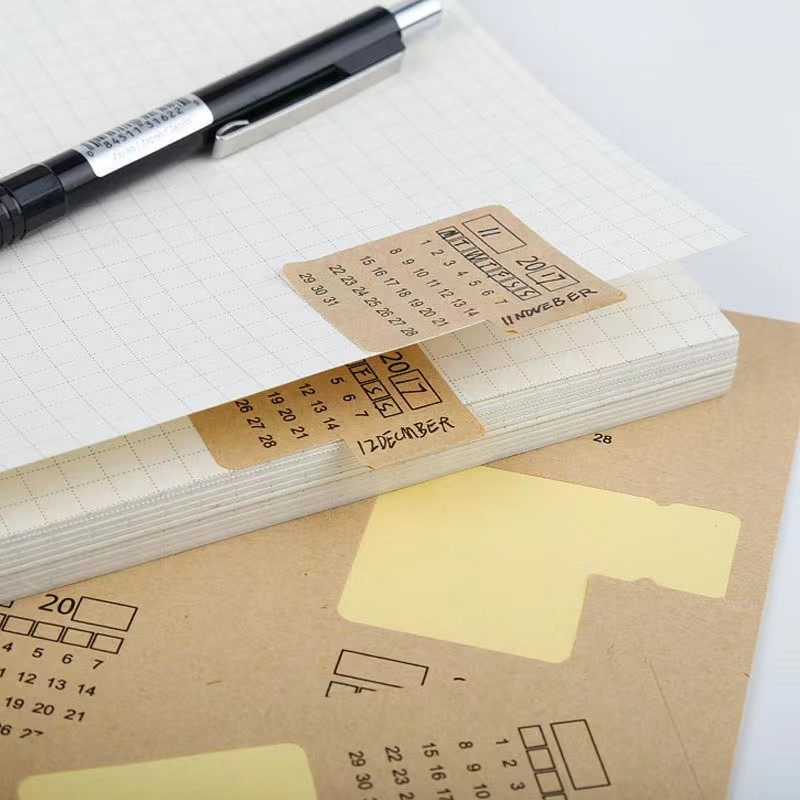 0 84511 31622 9
11
2017
M T W T F S S
1 2 3 4 5 6 7
8 9 10 11 12 13 14
15 16 17 18 19 20 21
22 23 24 25 26 27 28
29 30 31
11 NOVEBER
2017
F S S
5 6 7
12 13 14
19 20 21
26 27 28
12 DECMBER
28
20
4 5 6 7
12 13 14
19 20 21
1 2 3
8 9 10
15 16
22 23
29 30